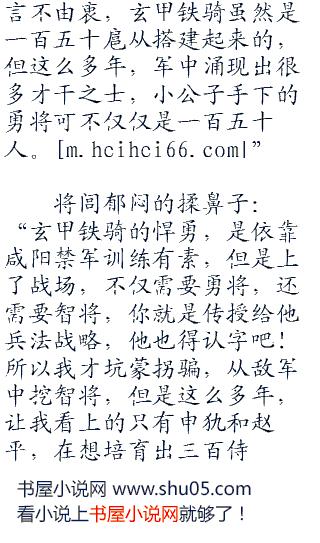 言不由衷，玄甲铁骑虽然是
一百五十扈从搭建起来的，
但这么多年，军中涌现出很
多才干之士，小公子手下的
勇将可不仅仅是一百五十
人。[m.hcihci66.com|”
将闾郁闷的揉鼻子：
“玄甲铁骑的悍勇，是依靠
咸阳禁军训练有素，但是上
了战场，不仅需要勇将，还
需要智将，你就是传授给他
兵法战略，他也得认字吧！
所以我才坑蒙拐骗，从敌军
中挖智将，但是这么多年，
让我看上的只有申犰和赵
平，在想培育出三百侍
书屋小说网 www.shu05.com
看小说上书屋小说网就够了！